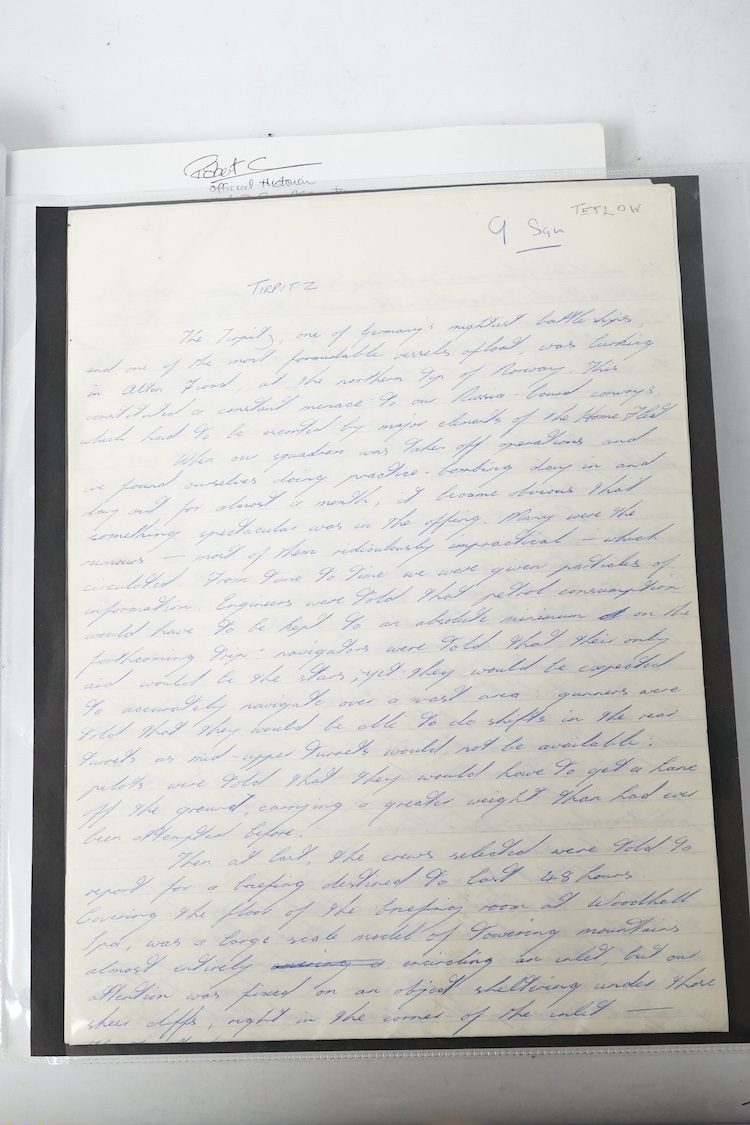 Robert C
official Historian
TETLOW
9 Sqn
TIRPITZ
The Tirpitz, one of Germany's mightiest battleships,
and one of the most formidable vessels afloat, was lurking
in Alten Fiord, at the northern tip of Norway. This
constituted a constant menace to our Russia-bound convoys
which had to be escorted by major elements of the Home Fleet
When our squadron was taken off operations and
we found ourselves doing practice-bombing day in and
day out for almost a month, it became obvious that
something spectacular was in the offing. Many were the
rumours — most of them ridiculously impractical — which
circulated. From time to time we were given particles of
information. Engineers were told that petrol consumption
would have to be kept to an absolute minimum on the
forthcoming trip: navigators were told that their only
aid would be the stars, yet they would be expected
to accurately navigate over a vast area: gunners were
told that they would be able to do shifts in the rear
turrets as mid-upper turrets would not be available:
pilots were told that they would have to get a Lanc
off the ground, carrying a greater weight than had ever
been attempted before.
Then at last, the crews selected were told to
report for a briefing destined to last 48 hours.
Covering the floor of the briefing room at Woodhall
Spa, was a large scale model of towering mountains
almost entirely encircling an inlet, but our
attention was fixed on an object sheltering under those
sheer cliffs, right in the corner of the inlet —